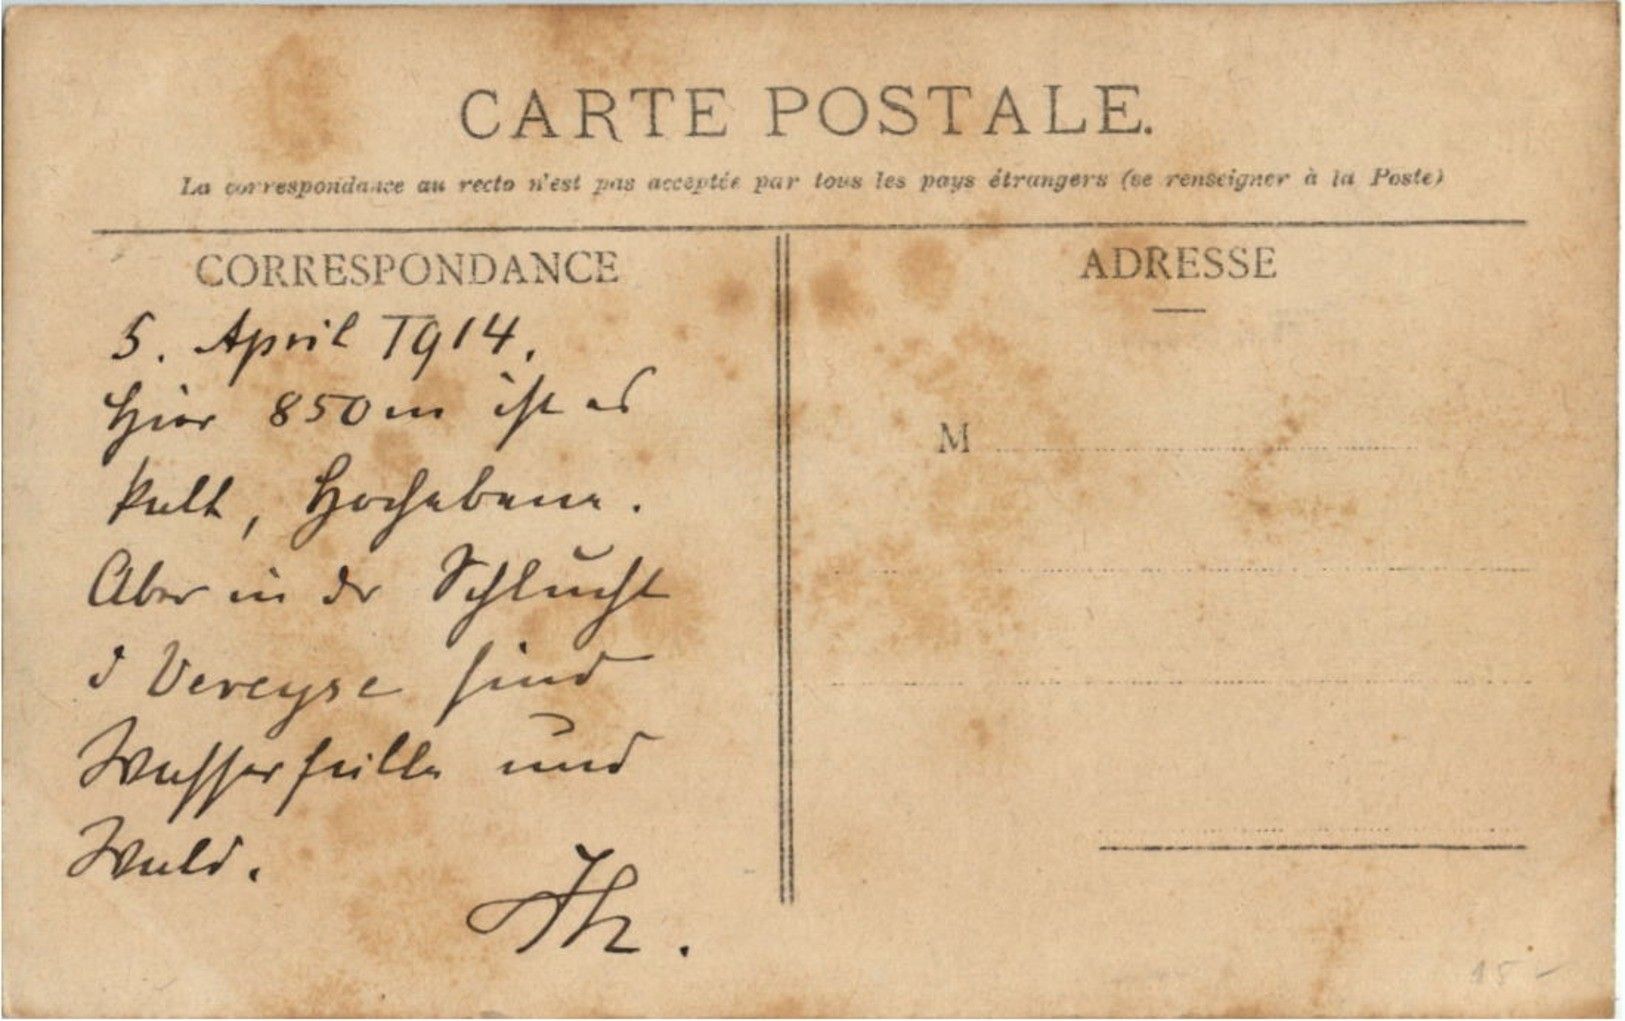 CARTE POSTALE.
La correspondance au recto n'est pas acceptée par tous les pays étrangers (se renseigner à la Poste)
CORRESPONDANCE
ADRESSE
5. April 1914.
Hier 850 m ist es
kalt, Hochebene.
Aber in der Schlucht
d Veveyse sind
Wasserfälle und
Wald.
Th.
M
15 –